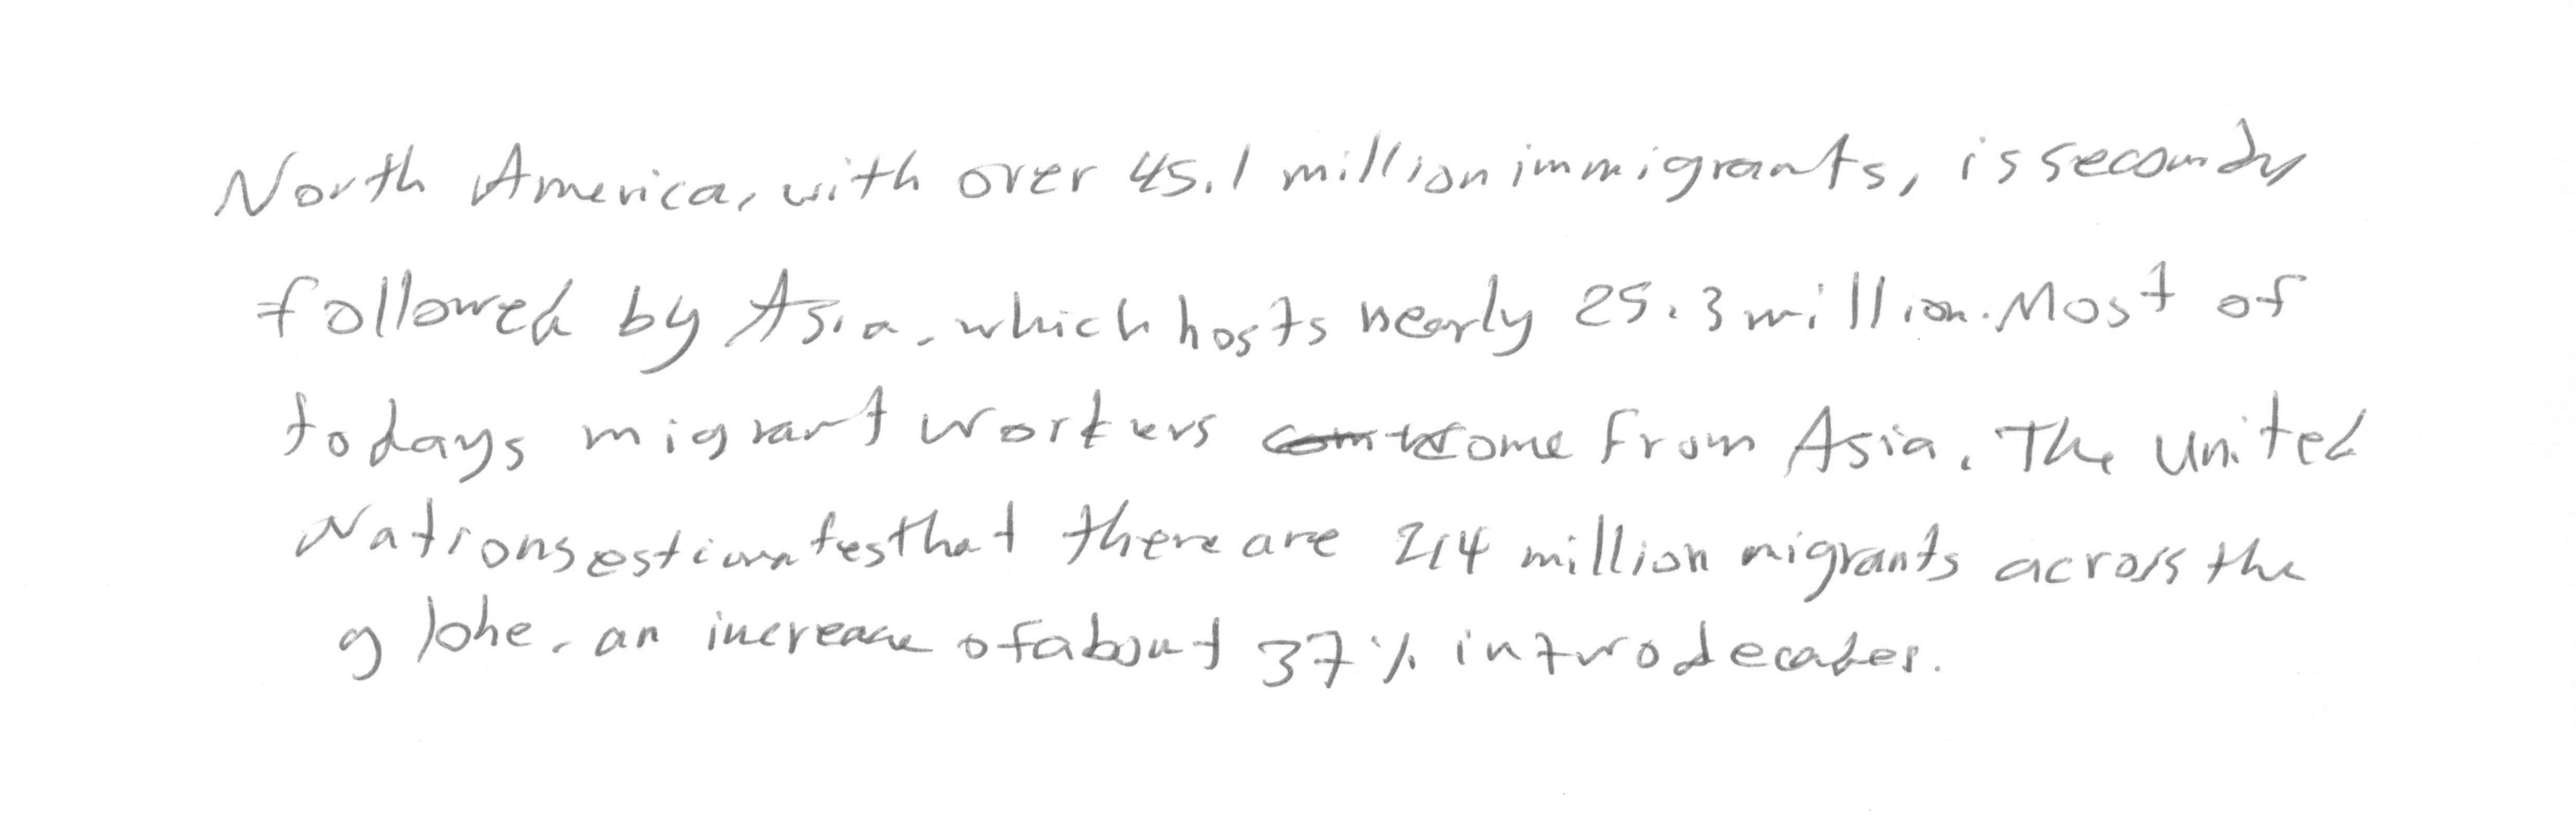 North America, with over 45.1 million immigrants, is second,
followed by Asia, which hosts nearly 25.3 million. Most of
todays migrant workers come from Asia. The United
Nations estimates that there are 214 million migrants across the
globe, an increase of about 37% in two decades.